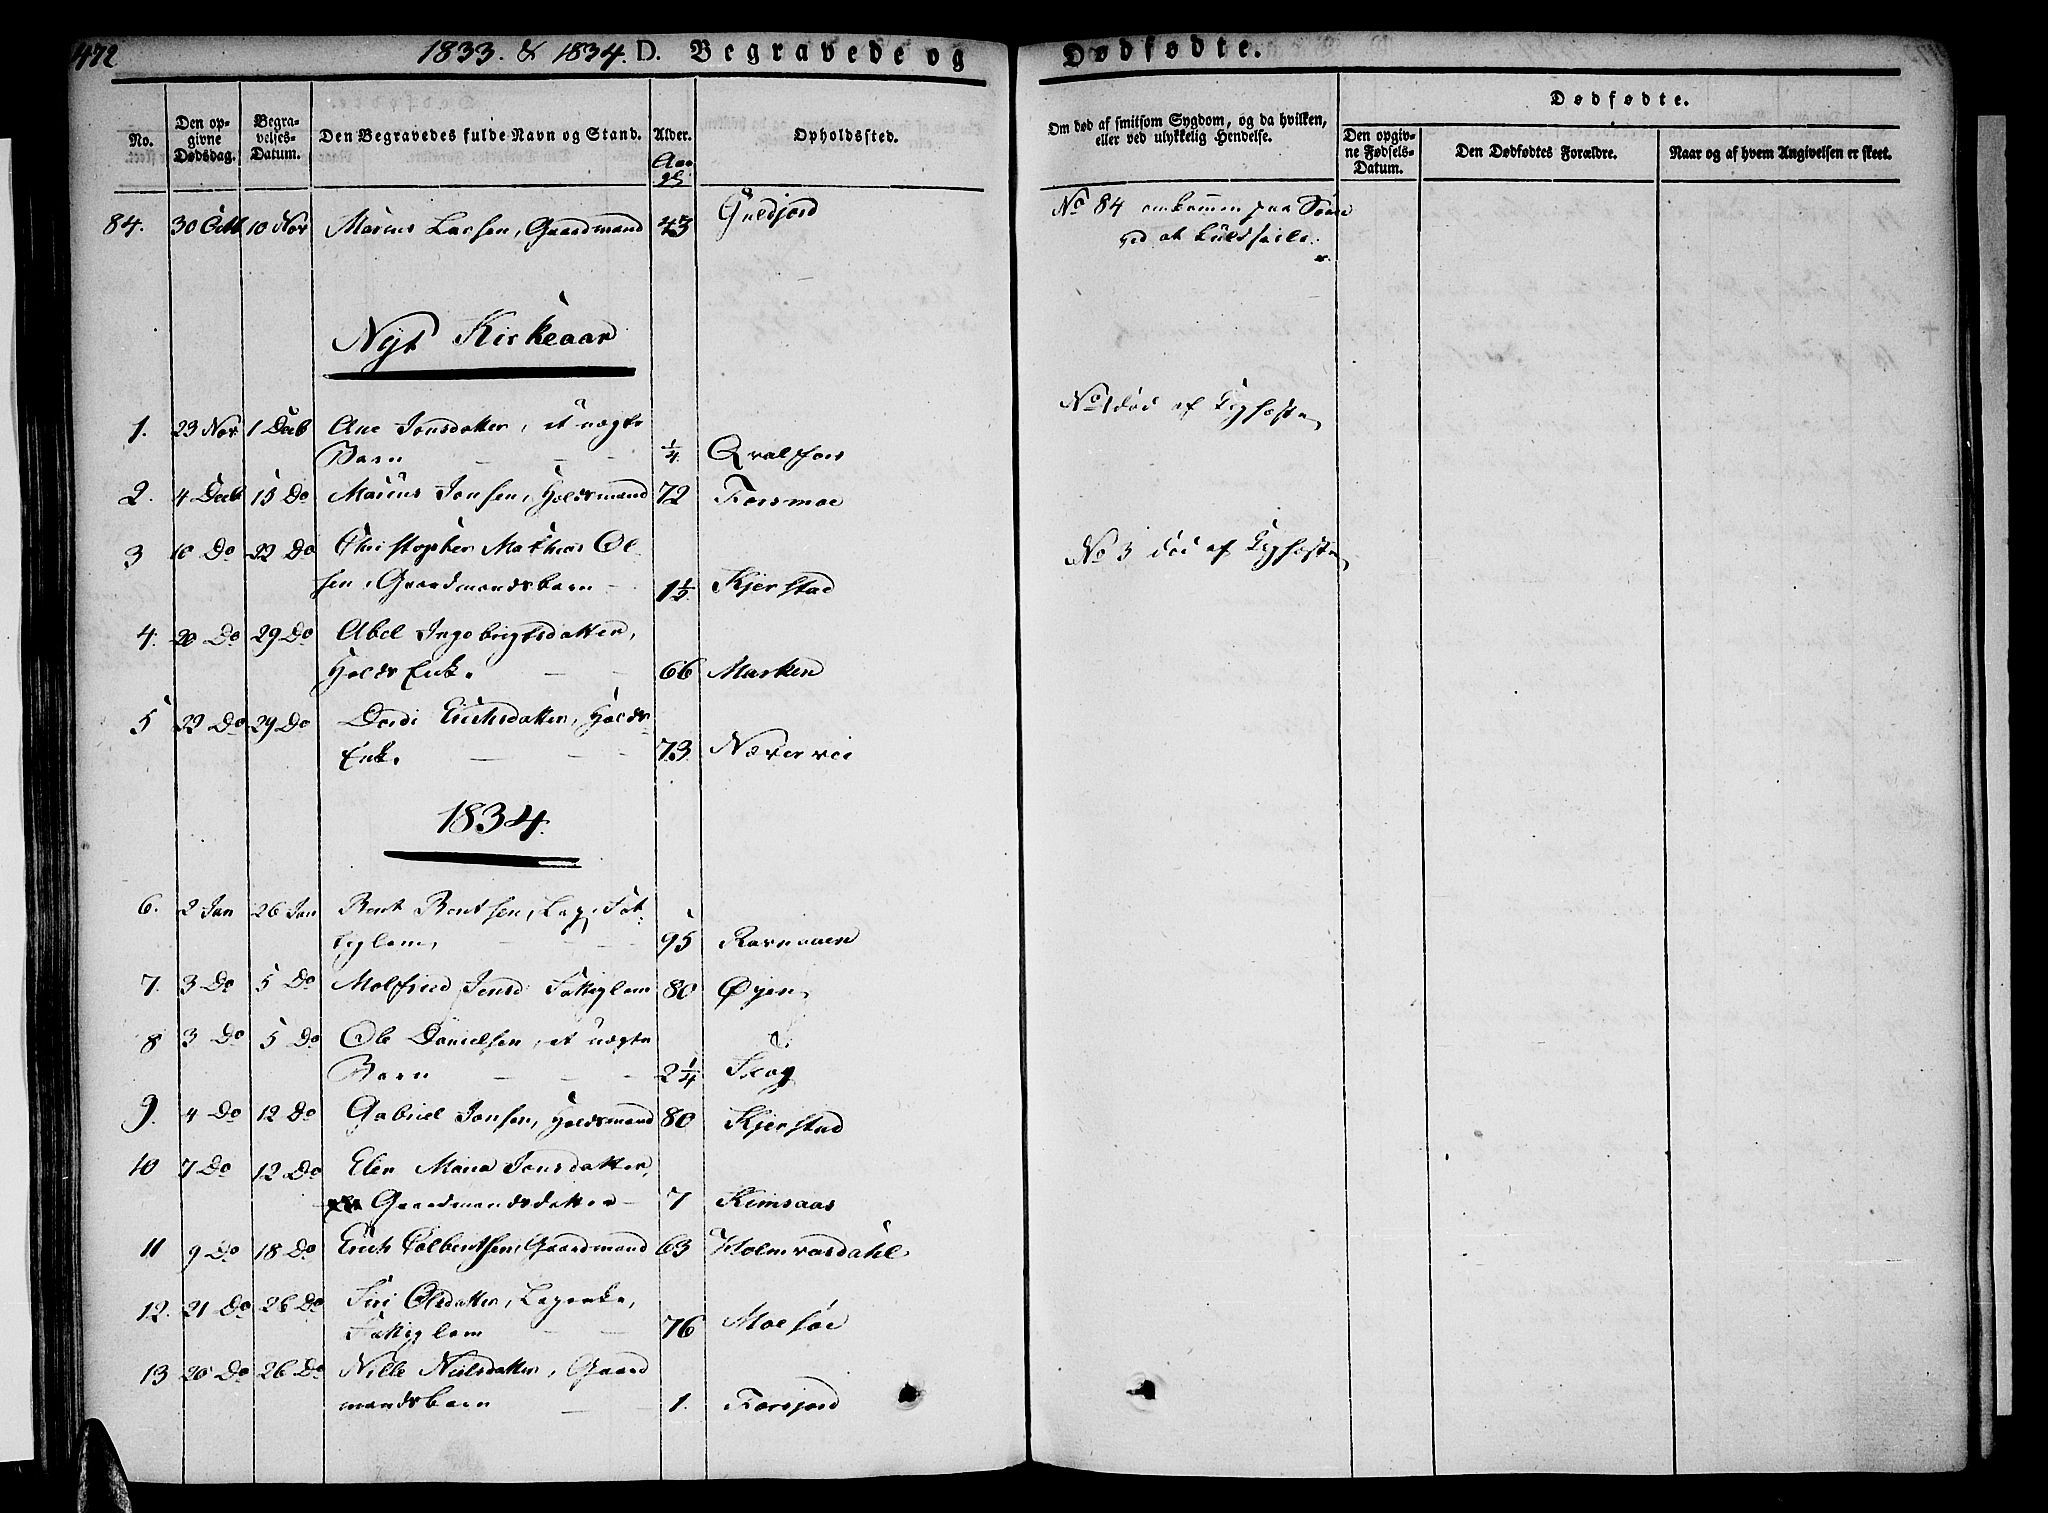 472
1833. & 1834. D. Begravede og Dødfødte.
No.
Den opgivne Dødsdag.
Begravelses-Datum.
Den Begravedes fulde Navn og Stand.
Alder.
Opholdssted.
Om død af smitsom Sygdom, og da hvilken, eller ved ulykkelig Hendelse.
Dødfødte.
Den opgivne Fødsels-Datum.
Den Dødfødtes Forældre.
Naar og af hvem Angivelsen er skeet.
84. 30 Octb 10 Nov Marcus Larsen, Gaardmand 43
No 84 omkommen paa Søen
ved at kuldseile.
Nyt Kirkeaar
1. 23 Nov 1 Decb Ane Jonsdatter, et uægte
Barn 1/4 Qvalfors
No 1 død af Kighoste
2. 4 Decb 15 Do Marcus Jonsen, Holdsmand 72 Forsmoe
3 10 Do 22 Do Christopher Mathias Ol-
sen, Gaardmandsbarn 1½ Kjerstad
No 3 død af Kighoste
4. 20 Do 29 Do Abel Ingebrigtsdatter,
Holds Enke. 66 Marken
5 22 Do 29 Do Dordi Erichsdatter, Holds
Enke. 73 Næverrei
1834.
6. 2 Jan 26 Jan Bent Bentsen, Lap, Fat-
tiglem, 95 Ravnaaen
7. 3 Do 5 Do Molfried Jensd Fattiglem 80 Øyen
8 3 Do 5 Do Ole Danielsen, et uægte
Barn 2¼ Skog
9. 4 Do 12 Do Gabriel Jonsen, Holdsmand 80 Kjerstad
10 7 Do 12 Do Elen Maria Jonsdatter,
Gaardmandsdatter 7 Remsaas
11 9 Do 18 Do Erich Colbentsen, Gaardmand 63 Holmvasdahl
12. 21 Do 26 Do Siri Olsdatter, Lapenke,
Fattiglem 76 Moesøe
13 20 Do 26 Do Nille Nielsdatter, Gaard
mandsbarn 1. Forsjord